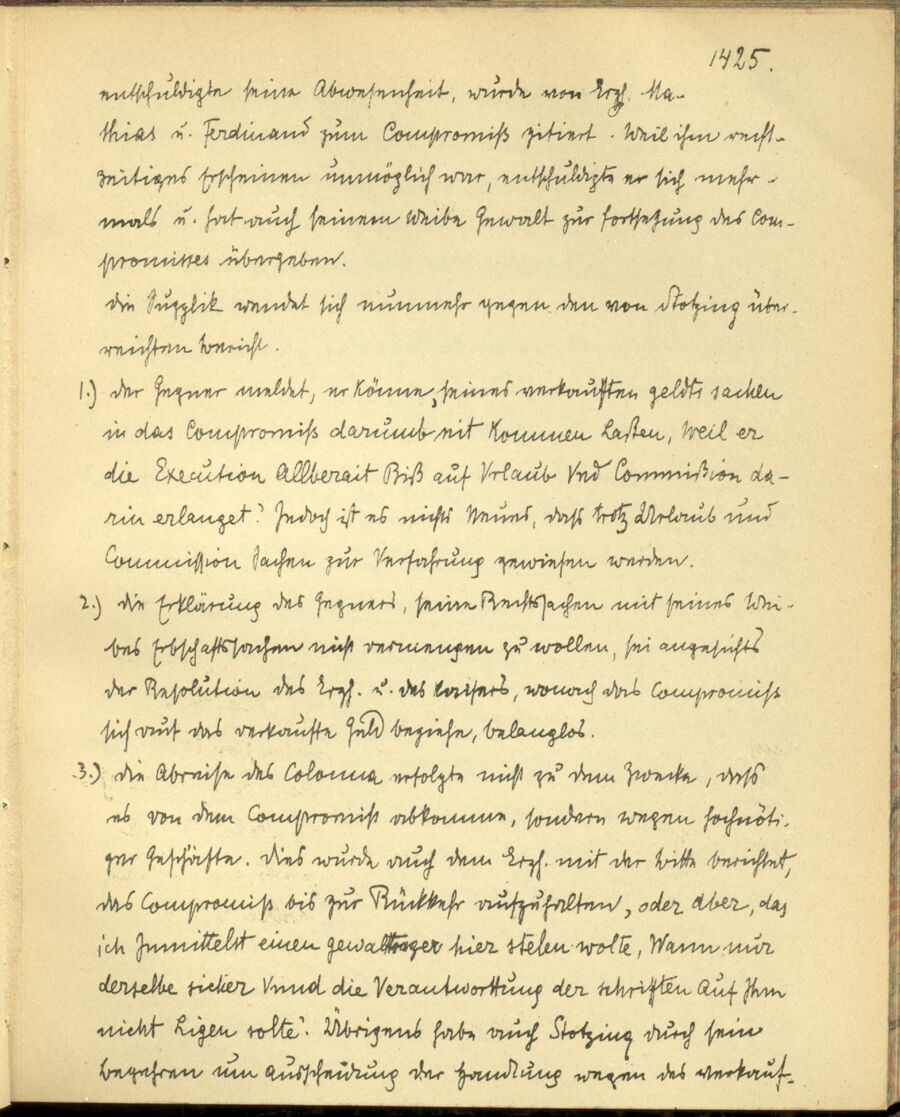 1425.
entschuldigte seine Abwesenheit, wurde von Erzh. Ma-
thias u. Ferdinand zum Compromiß zitiert. Weil ihm recht-
zeitiges Erscheinen unmöglich war, entschuldigte er sich mehr-
mals u. hat auch seinem Weibe Gewalt zur Fortsetzung des Com-
promisses übergeben.
Die Supplik wendet sich nunmehr gegen den von Stotzing über-
reichten Bericht.
1.) Der Gegner meldet, er könne „seines verkaufften geldts sachen
in das Compromiß darumb nit Kommen Laßen, Weil er
die Execution Allberait Biß auf Vrlaub Vnd Commißion da-
rin erlanget". Jedoch ist es nichts Neues, dass trotz Urlaub und
Commission Sachen zur Verfahrung gewiesen werden.
2.) Die Erklärung des Gegners, seine Rechtssachen mit seines Wei-
bes Erbschaftssachen nicht vermengen zu wollen, sei angesichts
der Resolution des Erzh. u. des Kaisers, wonach das Compromiß
sich auf das verkaufte Geld beziehe, belanglos.
3.) Die Abreise des Colonna erfolgte nicht zu dem Zwecke, dass
es von dem Compromiß abkomme, sondern wegen hochnöti-
ger Geschäfte. Dies wurde auch dem Erzh. mit der Bitte berichtet,
das Compromiß bis zur Rückkehr aufzuhalten, „oder aber, das
ich Inmittelst einen gewalttrager hier stelen wolte, Wann nur
derselbe sicher Vnnd die Verantworttung der schrifften Auf Ihm
nicht Ligen solte". Übrigens habe auch Stotzing durch sein
Begehren um Ausscheidung der Handlung wegen des verkauf-